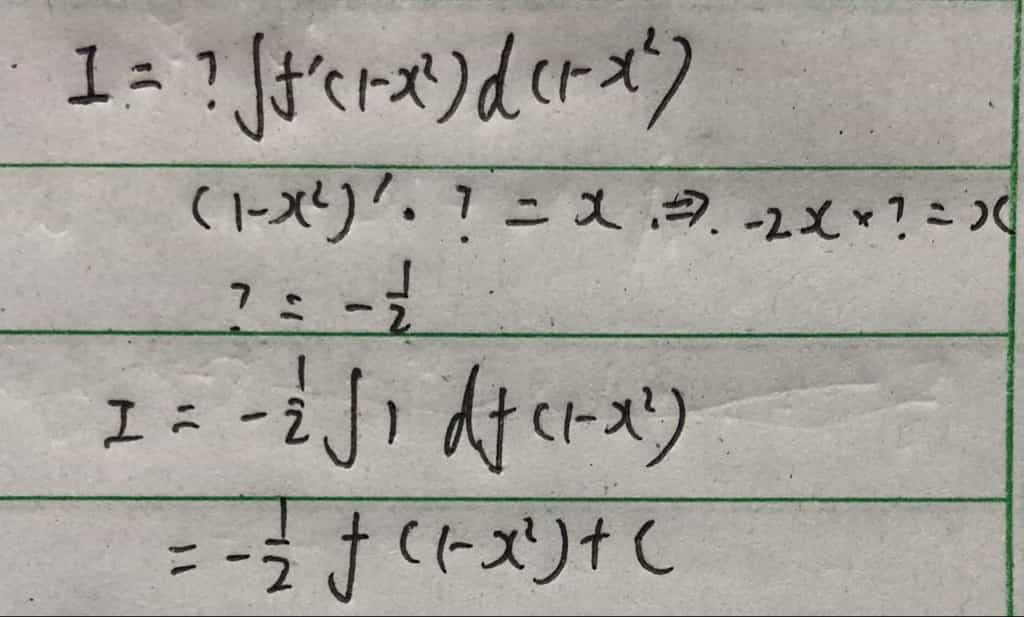 I = ? ∫f'(1-x²)d(1-x²)
(1-x²)'. ? = x ⇒ -2x × ? = x
? = -1/2
I = -1/2 ∫1 df(1-x²)
= -1/2 f(1-x²)+C